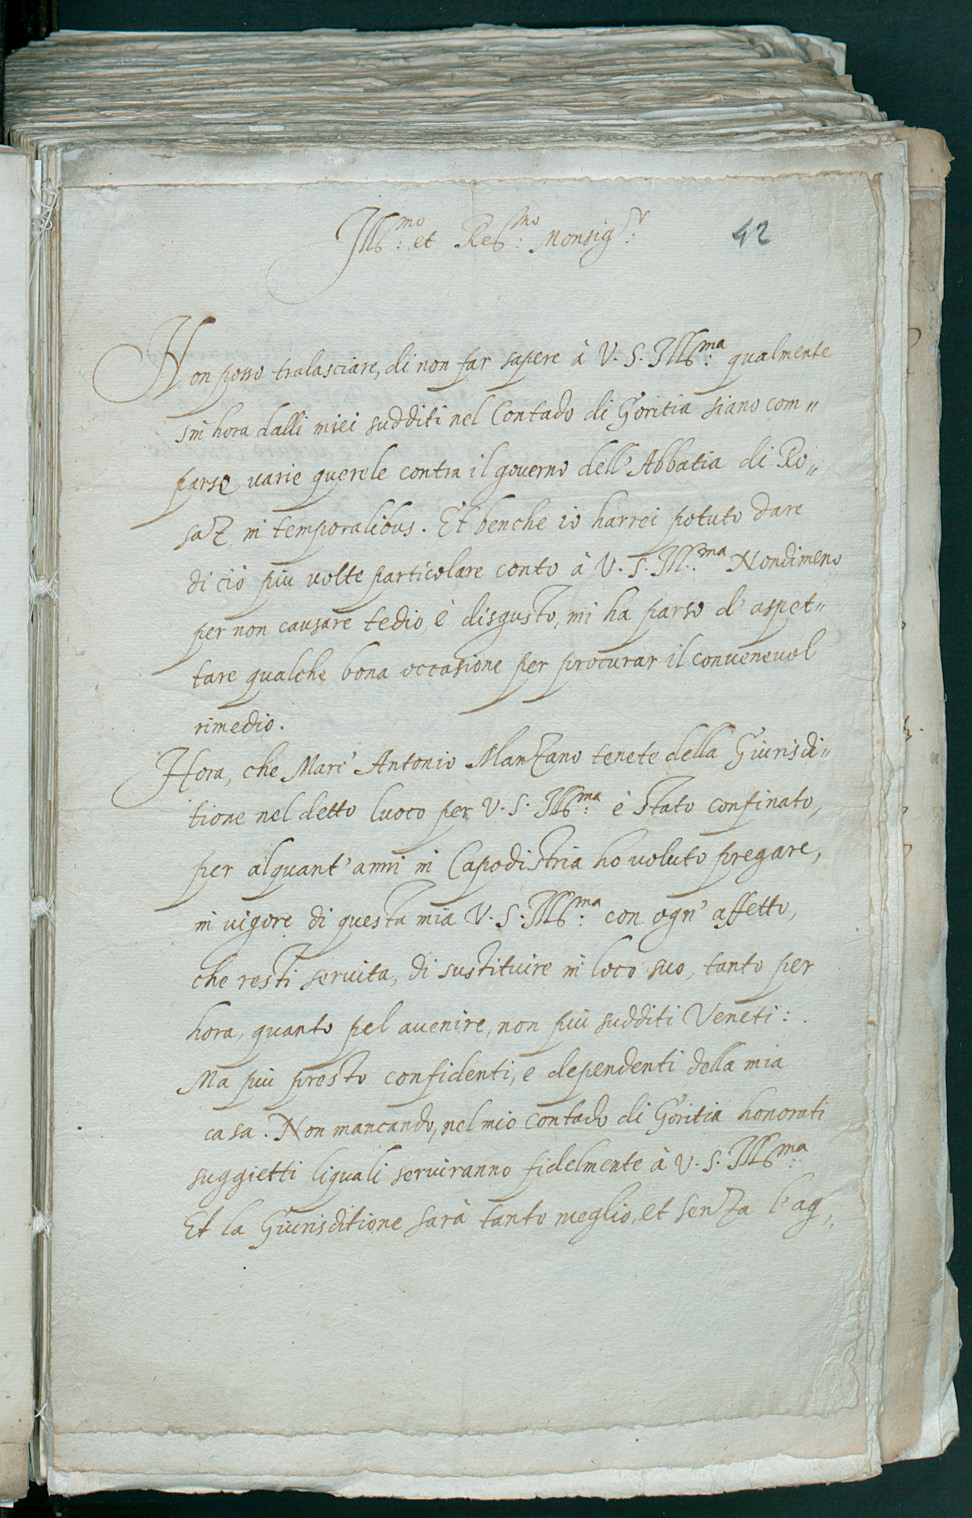 Ill.mo et Re.mo Monsig.r
42
Non posso tralasciare, di non far sapere à V. S. Ill.ma qualmente
sin hora dalli miei sudditi nel Contado di Goritia siano com„
parse varie querele contra il governo dell' Abbatia di Ro„
saz in temporalibus. Et benche io harrei potuto dare
di ciò piu volte particolare conto à V. S. Ill.ma Nondimeno
per non causare tedio, è disgusto, mi ha parso d' aspet„
tare qualche bona occasione per procurar il conuenevol
rimedio.
Hora, che Marc' Antonio Manzano tenete della Giurisdi„
tione nel detto luoco per V. S. Ill.ma è stato confinato,
per alquant' anni in Capodistria ho voluto pregare,
in vigore di questa mia V. S. Ill.ma con ogn' affetto,
che resti servita, di sustituire in loco suo, tanto per
hora, quanto pel auenire, non più sudditi Veneti:
Ma più presto confidenti, e dependenti della mia
casa. Non mancando, nel mio Contado di Goritia honorati
suggietti liquali serviranno fidelmente à V. S. Ill.ma
Et la Giurisditione sarà tanto meglio, et senza l' ag„